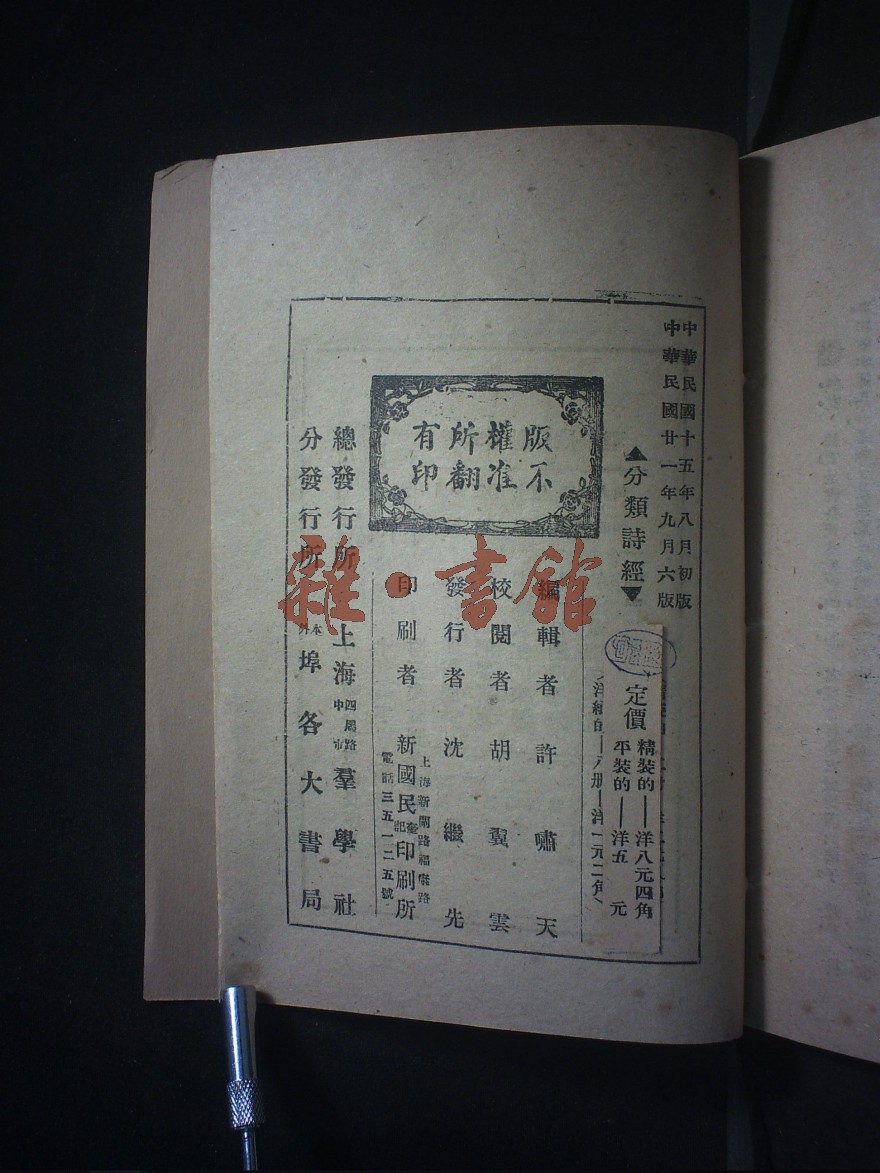 中華民國十五年八月初版
中華民國廿一年九月六版
▲分類詩經▼
定價
精裝的——洋八元四角
平裝的——洋五 元
版權所有
不准翻印
編輯者 許嘯天
校閱者 胡翼雲
發行者 沈繼先
印刷者 新國民印刷所
電話三五一二五號
總發行所 上海 羣學社
分發行所 本外埠各大書局
雜·書館